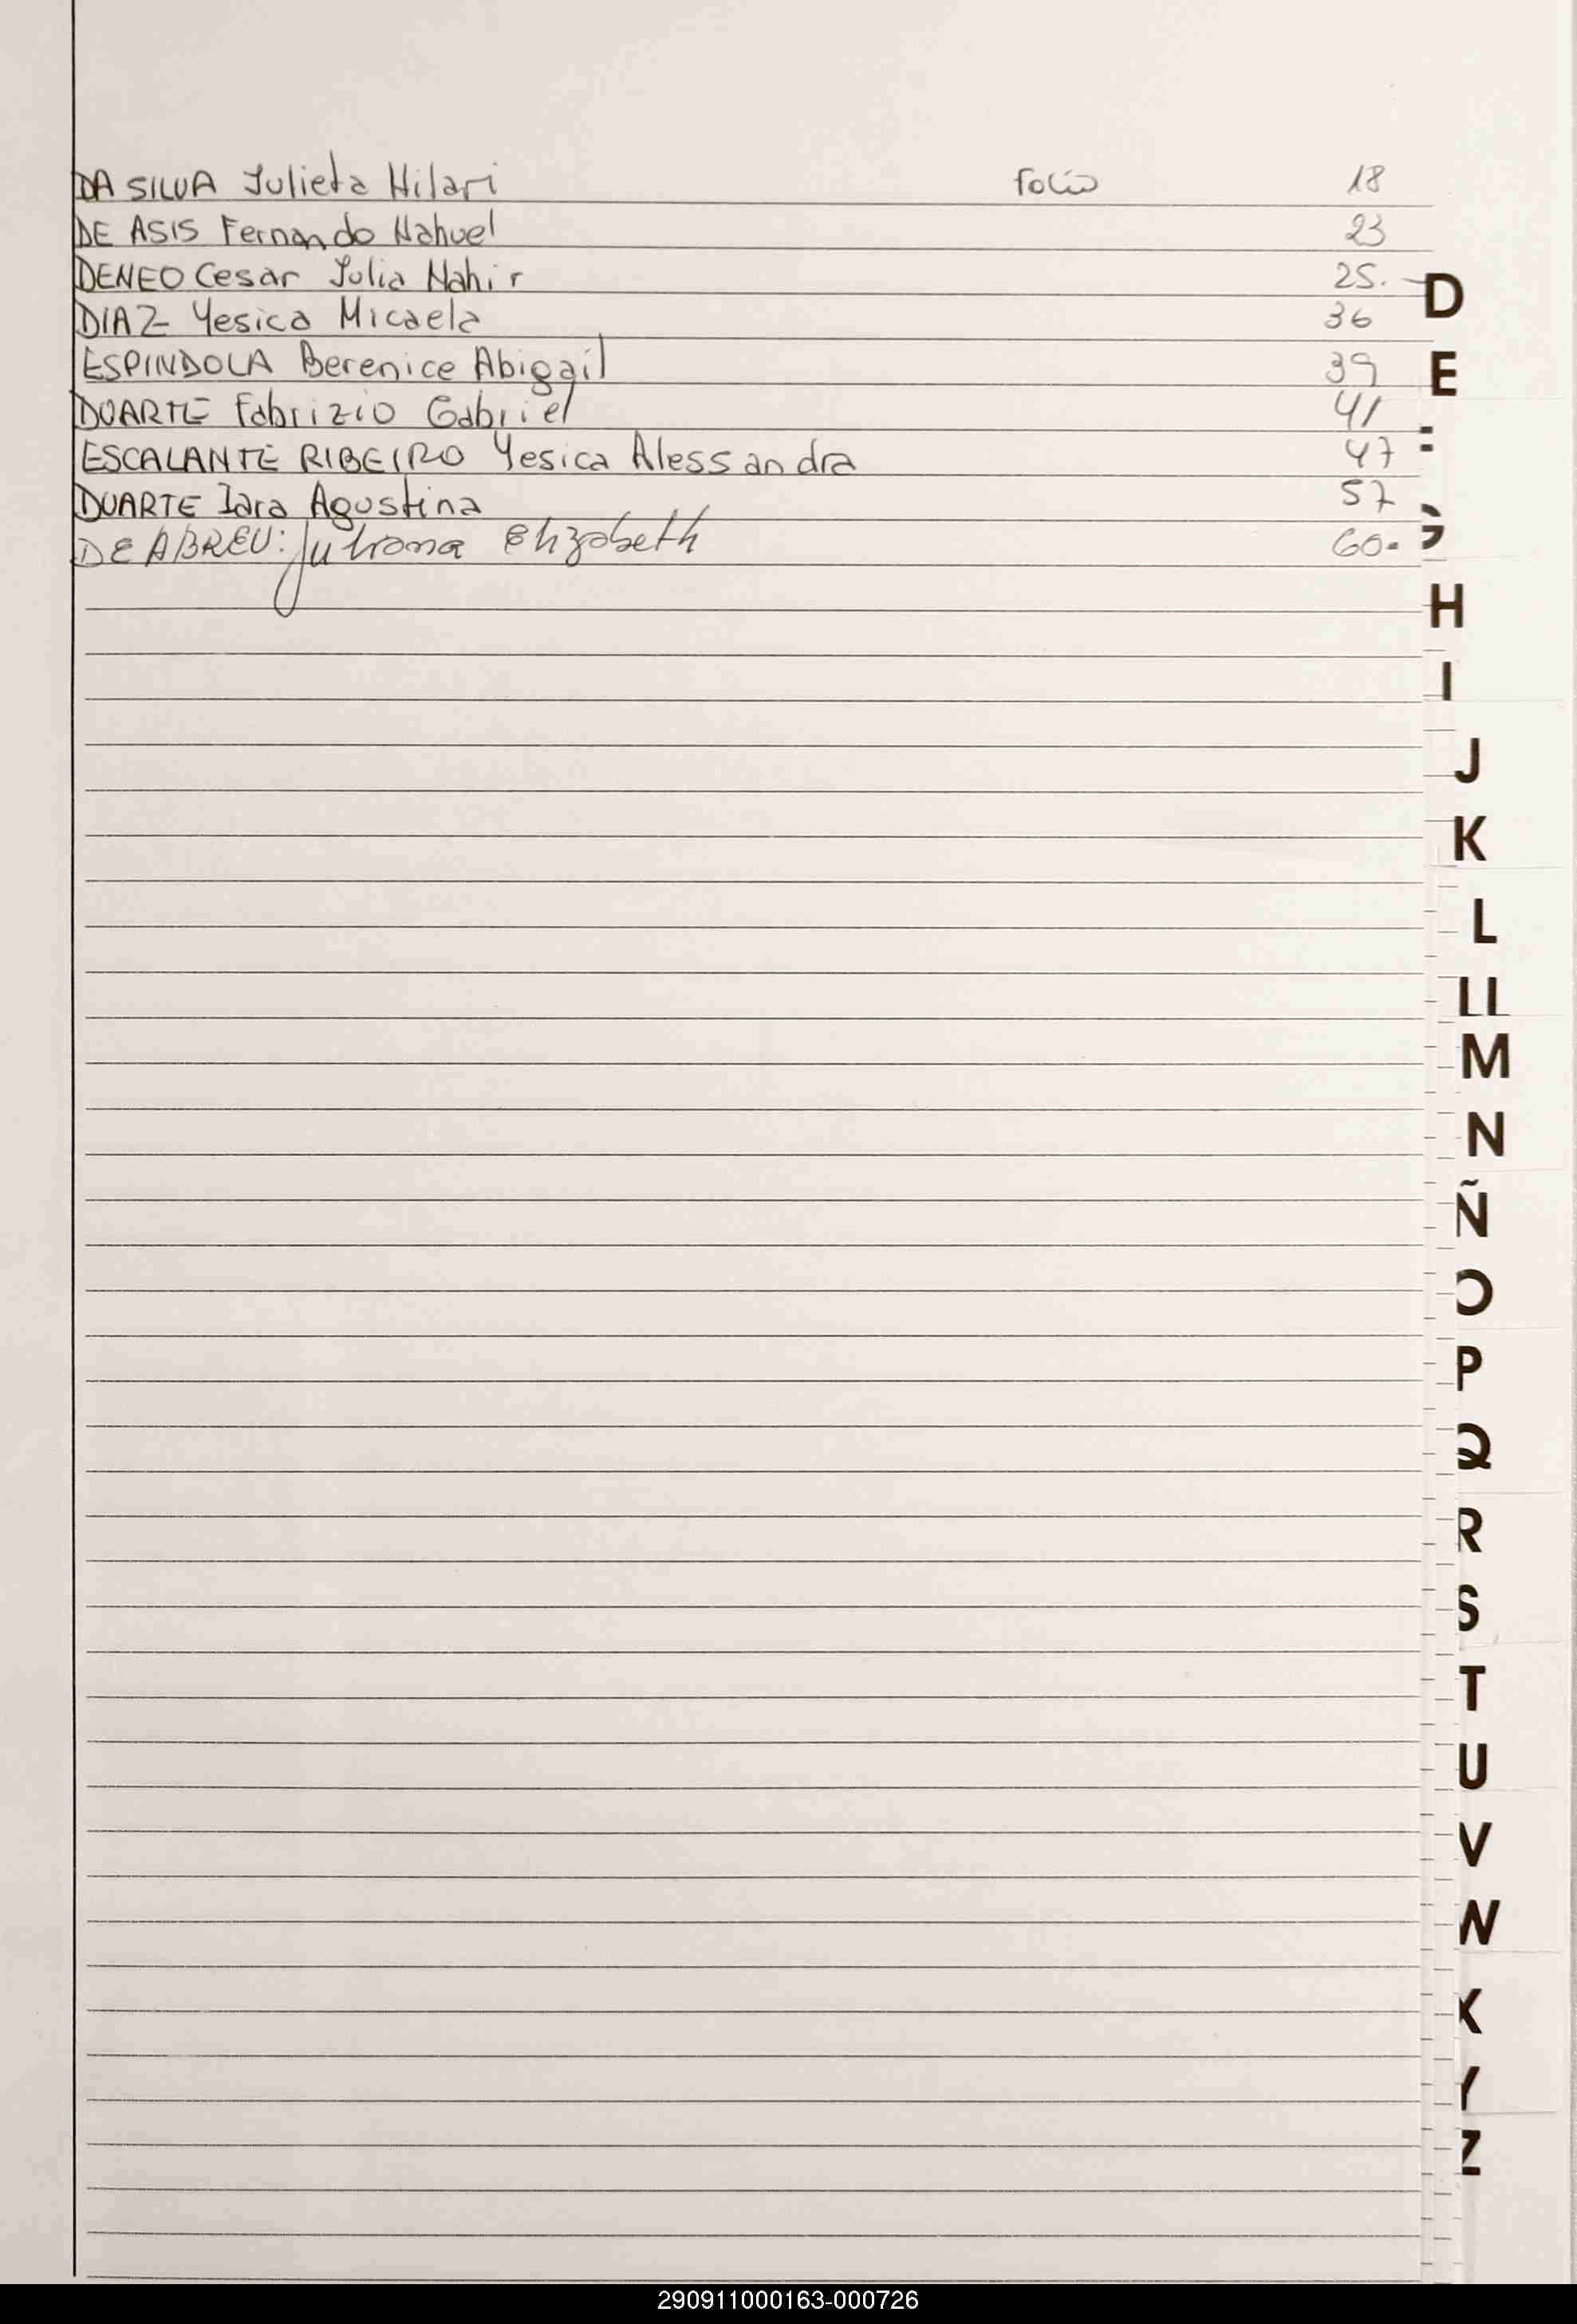 DA SILVA Julieta Hilari folio 18
DE ASIS Fernando Nahuel 23
DENEO Cesar Julia Nahir 25.
DIAZ Yesica Micaela 36
ESPINDOLA Berenice Abigail 39
DUARTE Fabrizio Gabriel 41
ESCALANTE RIBEIRO Yesica Alessandra 47
DUARTE Iara Agustina 57
DE ABREU: Juliana Elizabeth 60.
D
E
G
H
I
J
K
L
LL
M
N
Ñ
O
P
Q
R
S
T
U
V
W
X
Y
Z
290911000163-000726